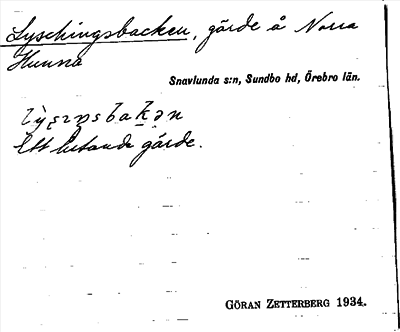 Lyschingsbacken, gärde å Norra
Hunna
Snavlunda s:n, Sundbo hd, Örebro län.
Ett lutande gärde.
GÖRAN ZETTERBERG 1934.